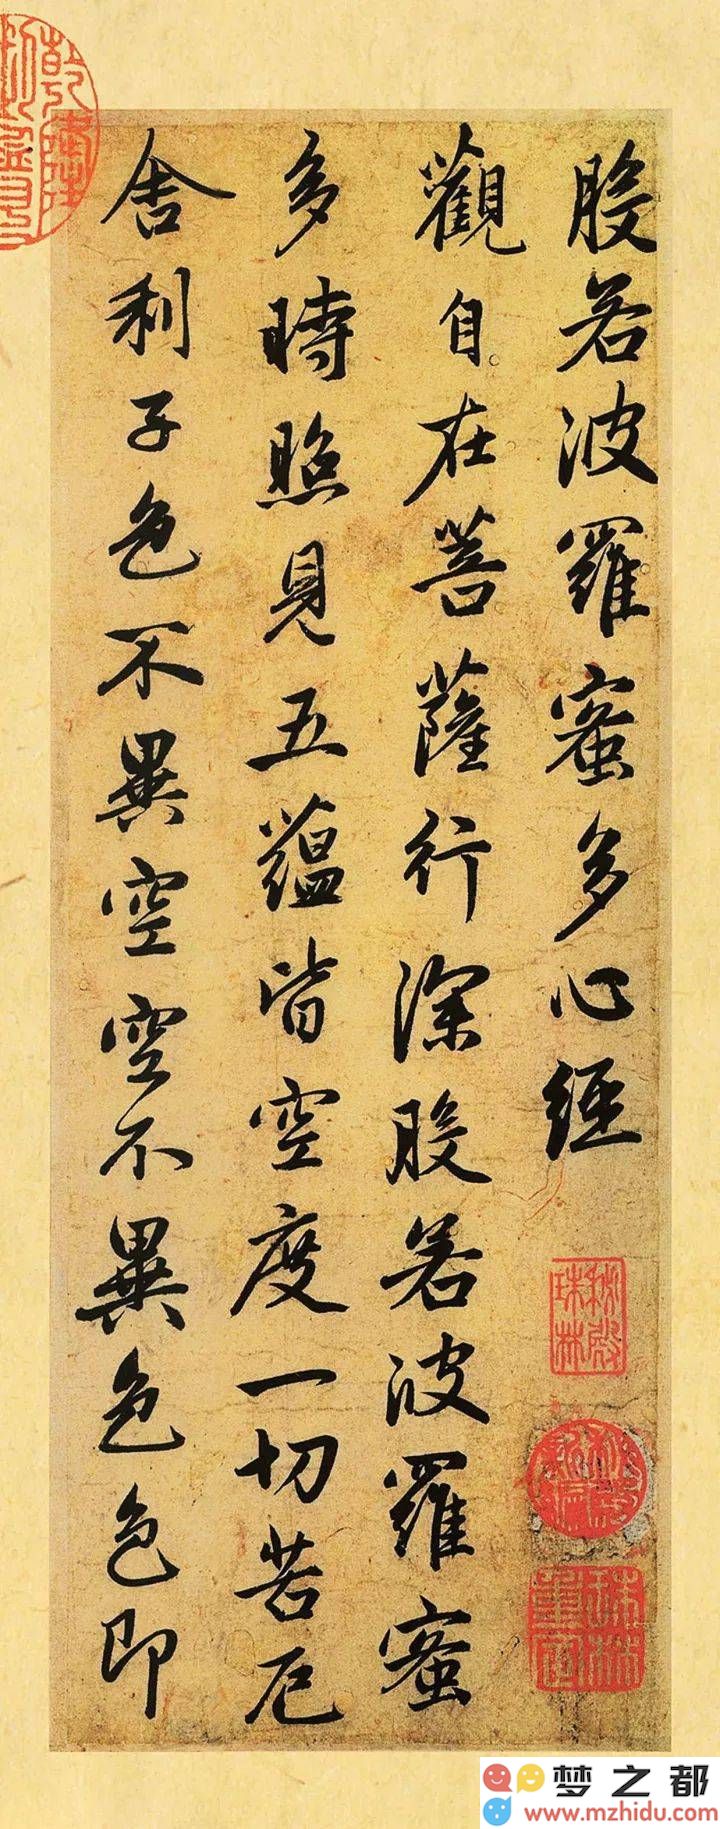 般若波羅蜜多心經
觀自在菩薩行深般若波羅蜜
多時照見五蘊皆空度一切苦厄
舍利子色不異空空不異色色即
秘殿
珠林
珠林
重定
乾隆
梦之都
www.mzhidu.com